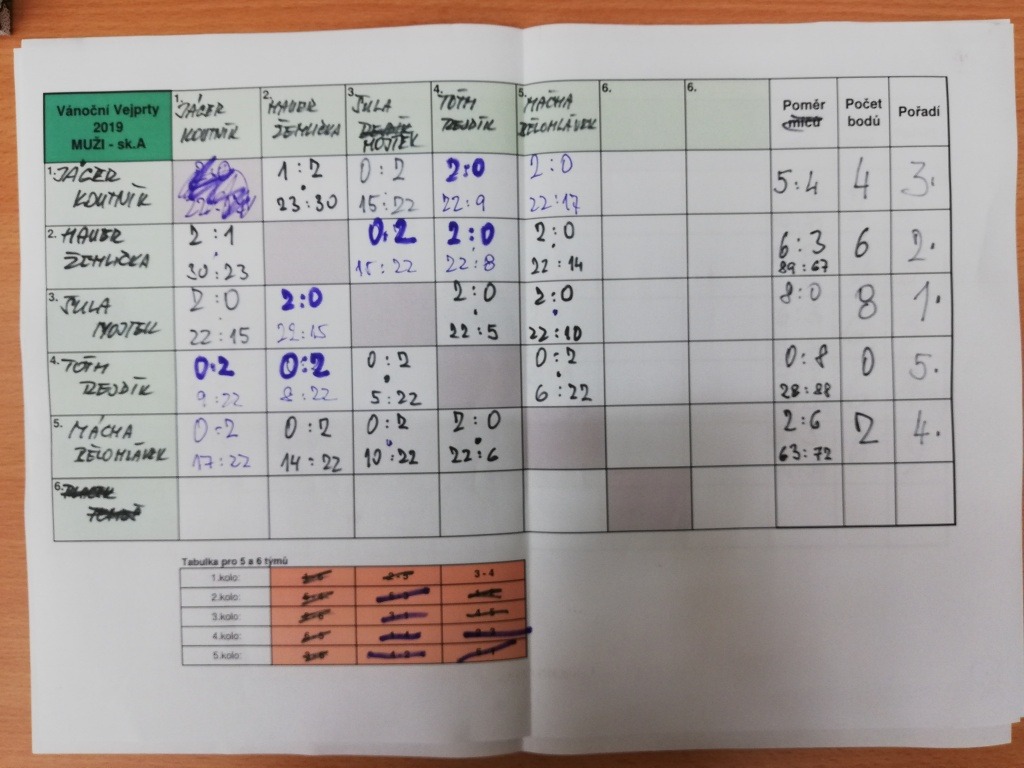 Vánoční Vejprty
2019
MUŽI - sk.A
1. JÁGER KOUTNÍK
2. MAUER ŽEMLIČKA
3. ŠULA MOJTEK
4. TÓTH REJDÍK
5. MÁCHA BĚLOHLÁVEK
6.
6.
Poměr míčů
Počet bodů
Pořadí
1. JÁGER 1:2 0:2 2:0 2:0 5:4 4 3.
KOUTNÍK 23:30 15:22 22:9 22:17
2. MAUER 2:1 0:2 2:0 2:0 6:3 6 2.
ŽEMLIČKA 30:23 15:22 22:8 22:14 89:67
3. ŠULA 2:0 2:0 2:0 2:0 8:0 8 1.
MOJTEK 22:15 22:15 22:5 22:10
4. TÓTH 0:2 0:2 0:2 0:2 0:8 0 5.
REJDÍK 9:22 8:22 5:22 6:22 28:88
5. MÁCHA 0:2 0:2 0:2 2:0 2:6 2 4.
BĚLOHLÁVEK 17:22 14:22 10:22 22:6 63:72
6.
Tabulka pro 5 a 6 týmů
1.kolo: 3 - 4
2.kolo:
3.kolo:
4.kolo:
5.kolo: